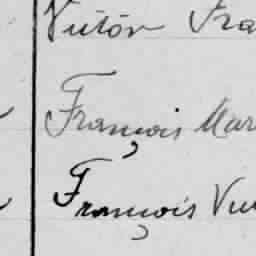 Victor Fra
François Mar
François Vic